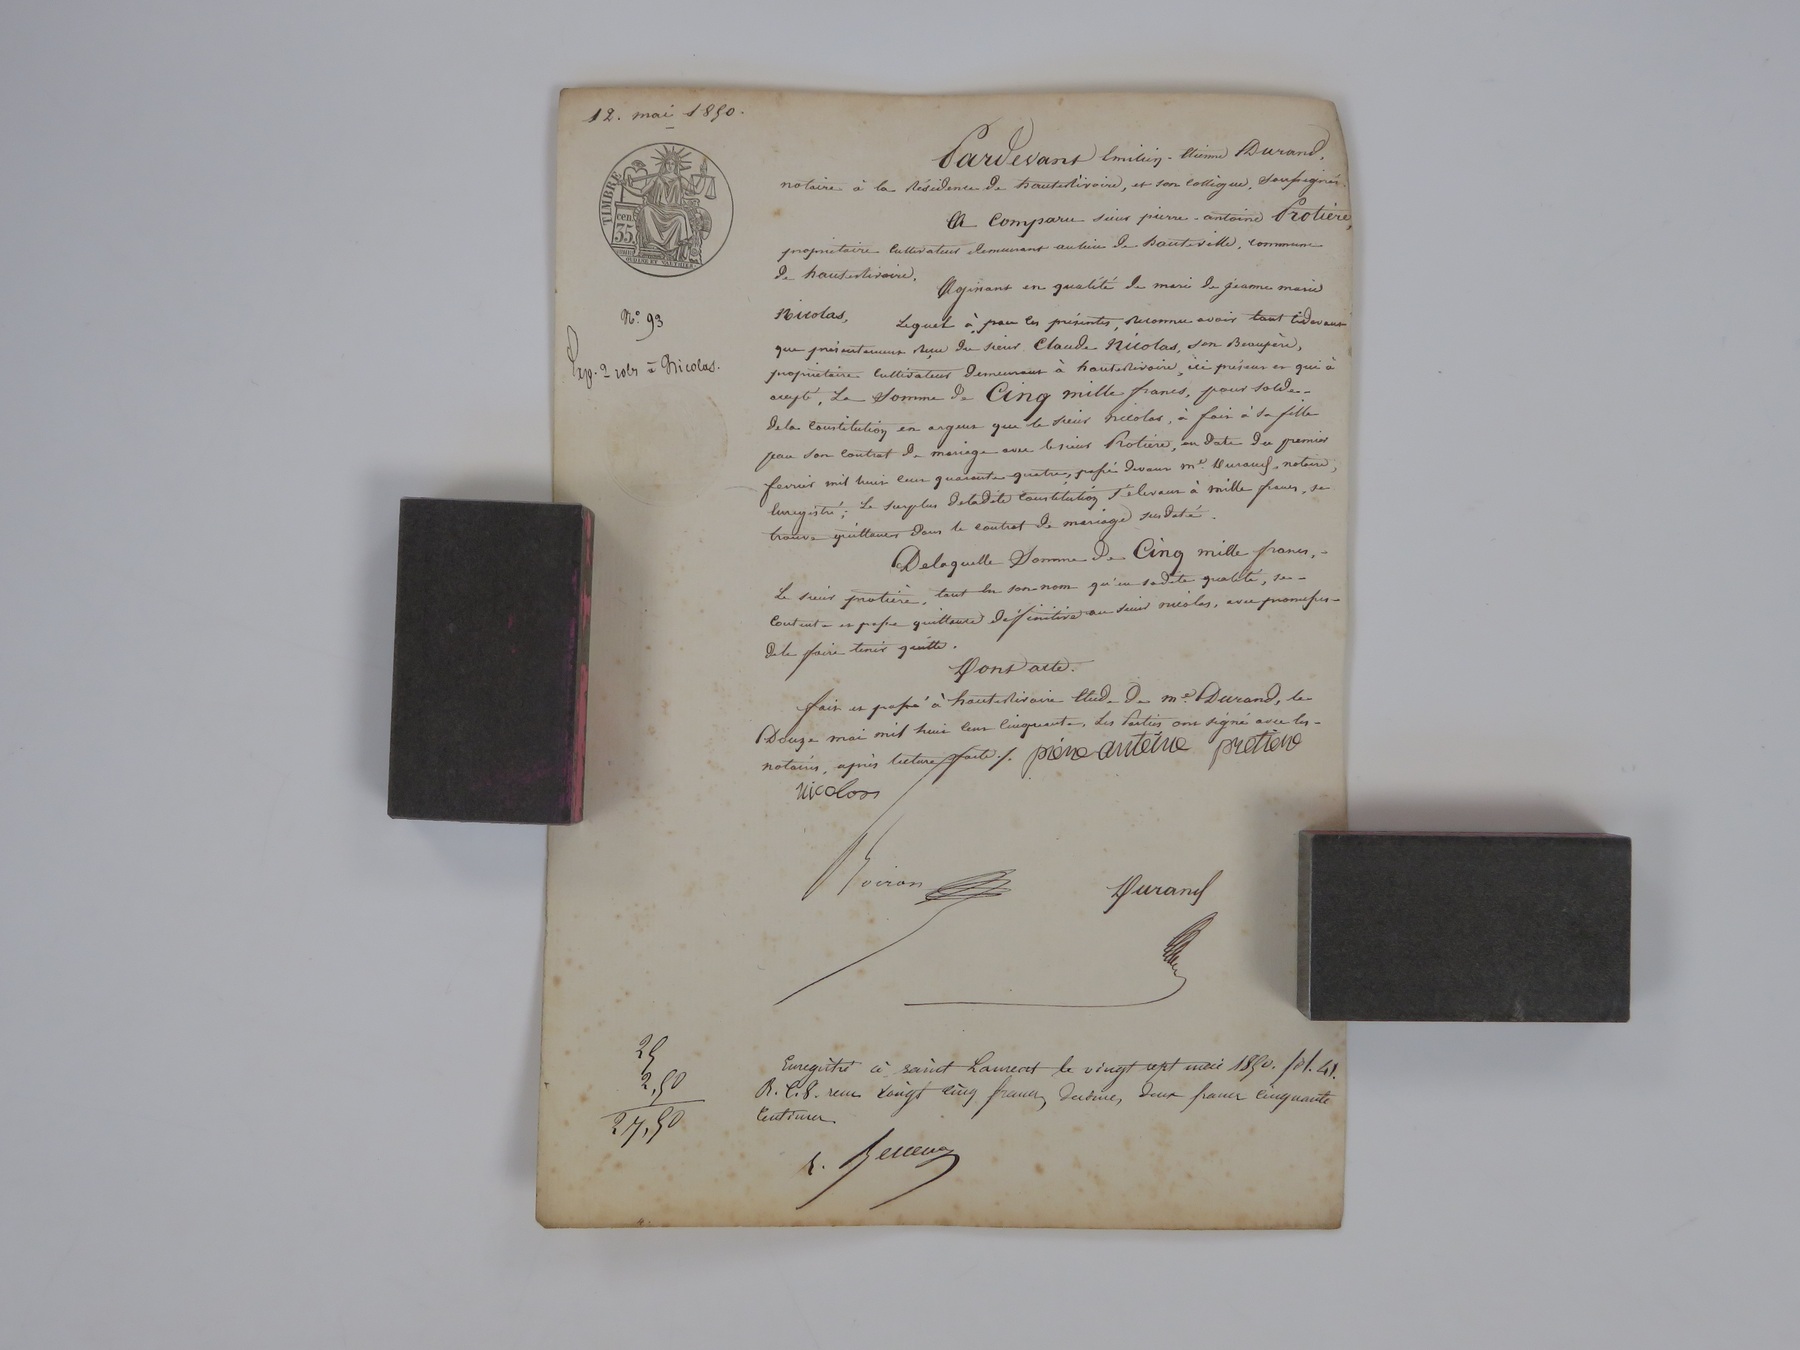 12. mai 1850.
TIMBRE
cen.
35.
N.o 93
Nicolas.
Pardevant Emilien-Etienne Durand,
notaire à la Résidence de hauterivoire, et son collègue, soussignés.
A Comparu sieur pierre-antoine Protière,
propriétaire cultivateur demeurant au lieu de hauteville, commune
de hauterivoire.
Agissant en qualité de mari de jeanne marie
Nicolas,
Lequel à, par les présentes, reconnu avoir tant cidevant
que présentement reçu du sieur Claude Nicolas, son Beaupère,
propriétaire cultivateur demeurant à hauterivoire, ici présent et qui à
accepté, La Somme de Cinq mille francs, pour solde
dela constitution en argent que le sieur Nicolas, à fait à sa fille
par son contrat de mariage avec le sieur Protière, en date du premier
février mil huit cent quarante quatre, passé devant m.e Durand, notaire,
Enregistré; Le surplus deladite constitution s'élevant à mille francs, se
trouve quittancé dans le contrat de mariage susdaté.
Delaquelle Somme de Cinq mille francs,
Le sieur protière, tant en son nom qu'en sadite qualité, se
contente et passe quittance définitive au sieur nicolas, avec promesse
dele faire tenir quitte.
Dont acte.
fait et passé à hauterivoire Etude de m.e Durand, le
Douze mai mil huit cent cinquante, Les Parties ont signé avec les
notaires, après lecture faite./.
piere antoine protiere
nicolas
Durand
25
2,50
27,50
Enregistré à saint Laurent le vingt sept mai 1850. fol. 41.
R. C. 8. reçu vingt cinq francs, decime, deux francs cinquante
Centimes.